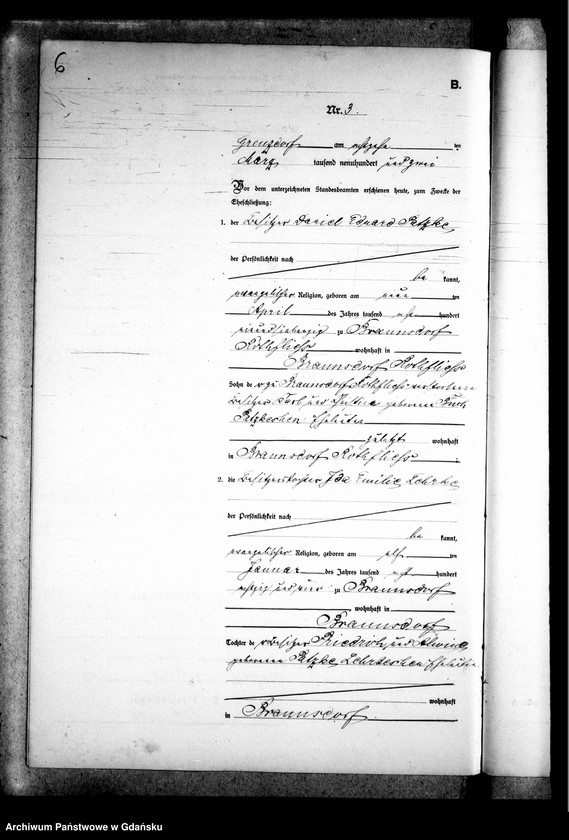 6
B.
Nr. 3.
Grenzdorf am achtzehn ten
März tausend neunhundert und zwei
Vor dem unterzeichneten Standesbeamten erschienen heute, zum Zwecke der
Eheschließung:
1. der Besitzer Daniel Eduard Petzke
der Persönlichkeit nach
be kannt,
evangelischer Religion, geboren am neun ten
April des Jahres tausend acht hundert
zu Braunsdorf
Rothfließ wohnhaft in
Braunsdorf Rothfließ
Sohn de r zu Braunsdorf Rothfließ verstorbenen
Besitzer und geborene
Petzkeschen Eheleute
zuletzt wohnhaft
in Braunsdorf Rothfließ
2. die Besitzerstochter Ida Emilie Lehrke
der Persönlichkeit nach
be kannt,
evangelischer Religion, geboren am elf ten
Januar des Jahres tausend acht hundert
achtzig und vier zu Braunsdorf
wohnhaft in
Braunsdorf
Tochter de r Besitzer Friedrich und
geborene Petzke Lehrkeschen Eheleute
wohnhaft
in Braunsdorf
Archiwum Państwowe w Gdańsku